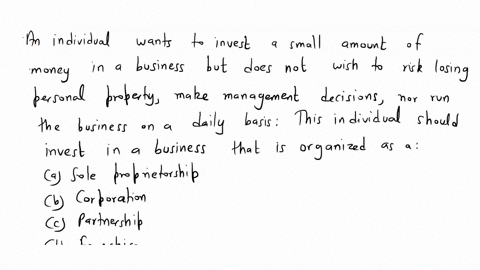 An individual wants to invest a small amount of
money in a business but does not wish to risk losing
personal property, make management decisions, nor run
the business on a daily basis: This individual should
invest in a business that is organized as a:
(a) Sole proprietorship
(b) Corporation
(c) Partnership